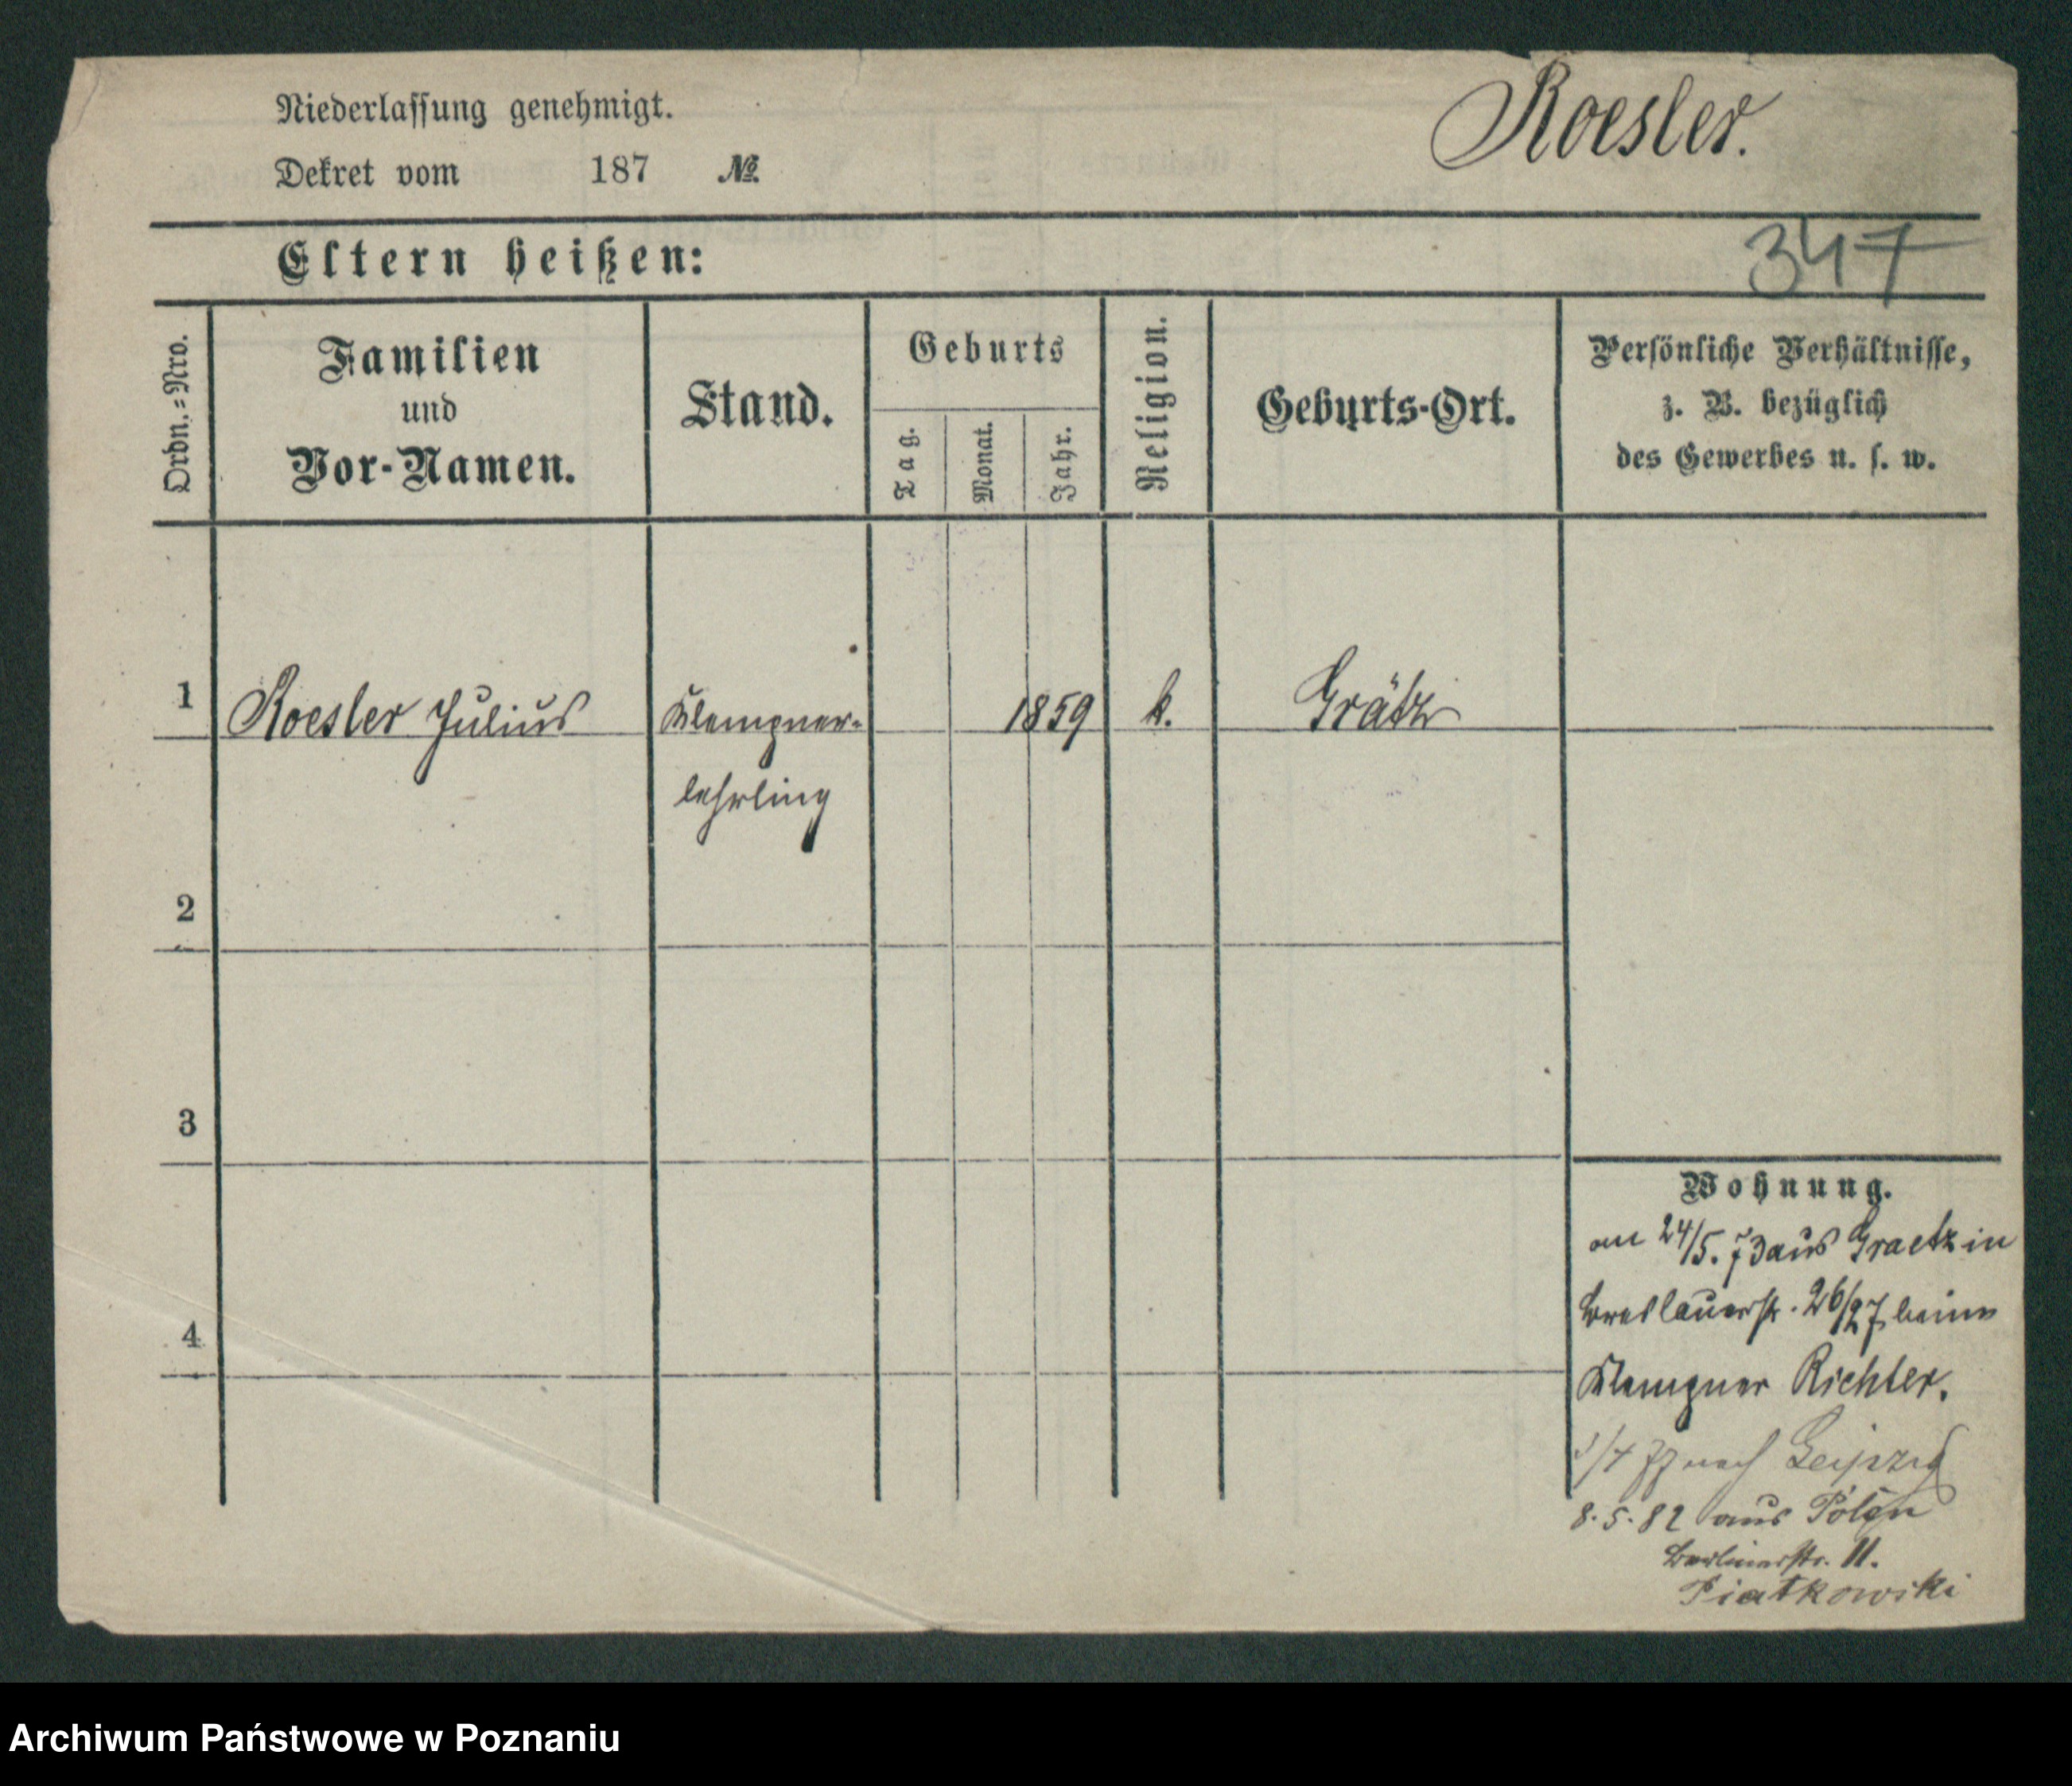 Niederlassung genehmigt.
Roesler.
Dekret vom 187 №
Eltern heißen:
347
Ordn.=Nro.
Familien
und
Vor-Namen.
Stand.
Geburts
Tag.
Monat.
Jahr.
Religion.
Geburts-Ort.
Persönliche Verhältnisse,
z. B. bezüglich
des Gewerbes u. s. w.
1 Roesler Julius Klempner= 1859 k. Grätz
lehrling
2
3
4
Wohnung.
am 24/5. 73 aus Graetz in
Breslauerstr. 26/27 beim
Klempner Richter.
nach Leipzig
8.5.82 aus Polen
Berlinerstr. 11.
Piatkowski
Archiwum Państwowe w Poznaniu